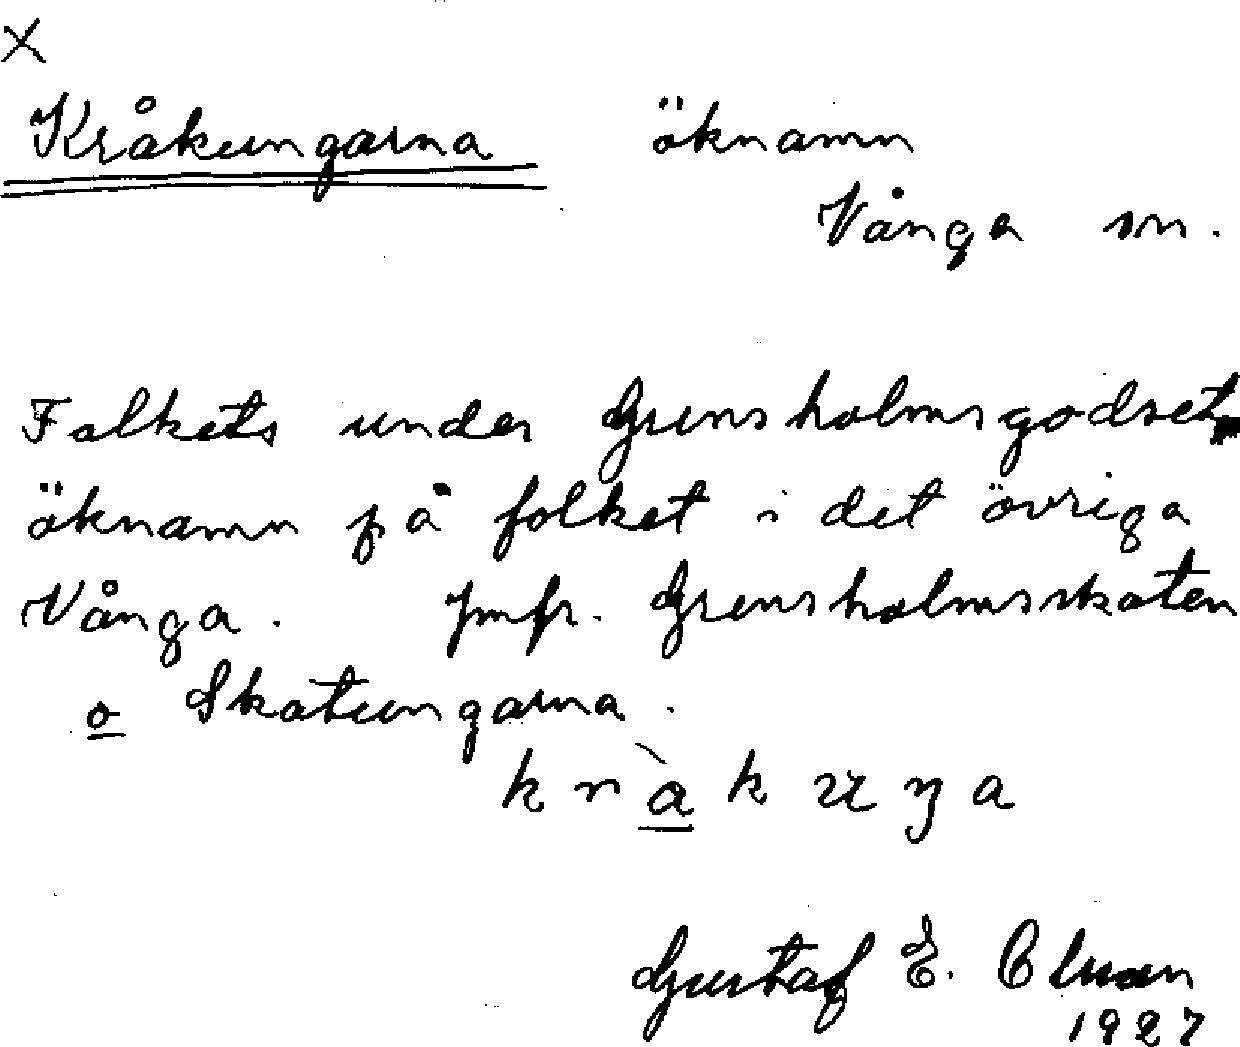 ×
Kråkungarna öknamn
Vånga sn.
Folkets under Grensholmsgodset
öknamn på folket i det övriga
Vånga. Jmfr. Grensholmsskaten
o Skatungarna.
Gustaf E.
1927